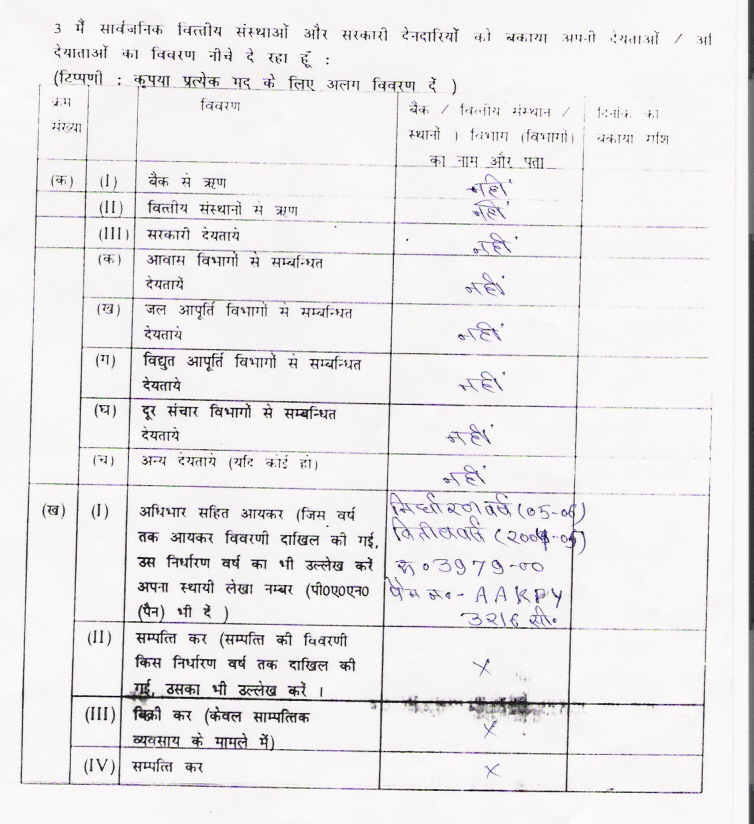 3 मैं सार्वजनिक वित्तीय संस्थाओं और सरकारी देनदारियों को बकाया अपनी देयताओं / अति
देयाताओं का विवरण नीचे दे रहा हूँ :
(टिप्पणी : कृपया प्रत्येक मद के लिए अलग विवरण दें )
क्रम संख्या
विवरण
बैक / वित्तीय संस्थान /
स्थानों । विभाग (विभागों)
का नाम और पता
दिनांक को
बकाया राशि
(क) (I) बैक से ऋण नहीं
(II) वित्तीय संस्थानों से ऋण नहीं
(III) सरकारी देयताये नहीं
(क) आवास विभागों से सम्बन्धित
देयतायें नहीं
(ख) जल आपूर्ति विभागों से सम्बन्धित
देयताये नहीं
(ग) विद्युत आपूर्ति विभागों से सम्बन्धित
देयताये नहीं
(घ) दूर संचार विभागों से सम्बन्धित
देयताये नहीं
(च) अन्य देयताये (यदि कोई हो) नहीं
(ख) (I) अधिभार सहित आयकर (जिम वर्ष
तक आयकर विवरणी दाखिल की गई,
उस निर्धारण वर्ष का भी उल्लेख करें
अपना स्थायी लेखा नम्बर (पी०ए०एन०
(पैन) भी दें )
निर्धारण वर्ष (05-06)
वितीय वर्ष (2004-05)
रू० 3979-00
पैन न०- AAKPY
3216 सी०
(II) सम्पत्ति कर (सम्पत्ति की विवरणी
किस निर्धारण वर्ष तक दाखिल की
गई, उसका भी उल्लेख करें ।
x
(III) बिक्री कर (केवल साम्पत्तिक
व्यवसाय के मामले में)
x
(IV) सम्पत्ति कर x